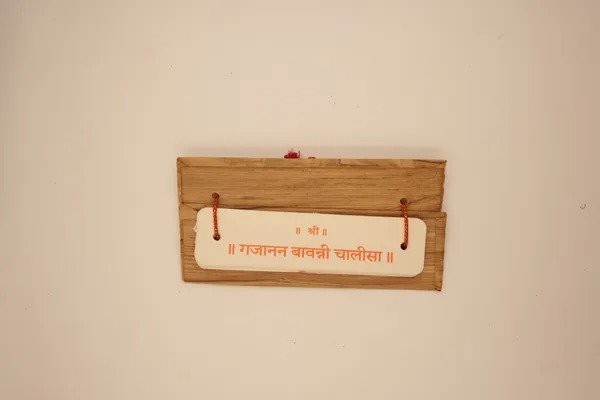 ॥ श्री ॥
॥ गजानन बावन्नी चालीसा ॥